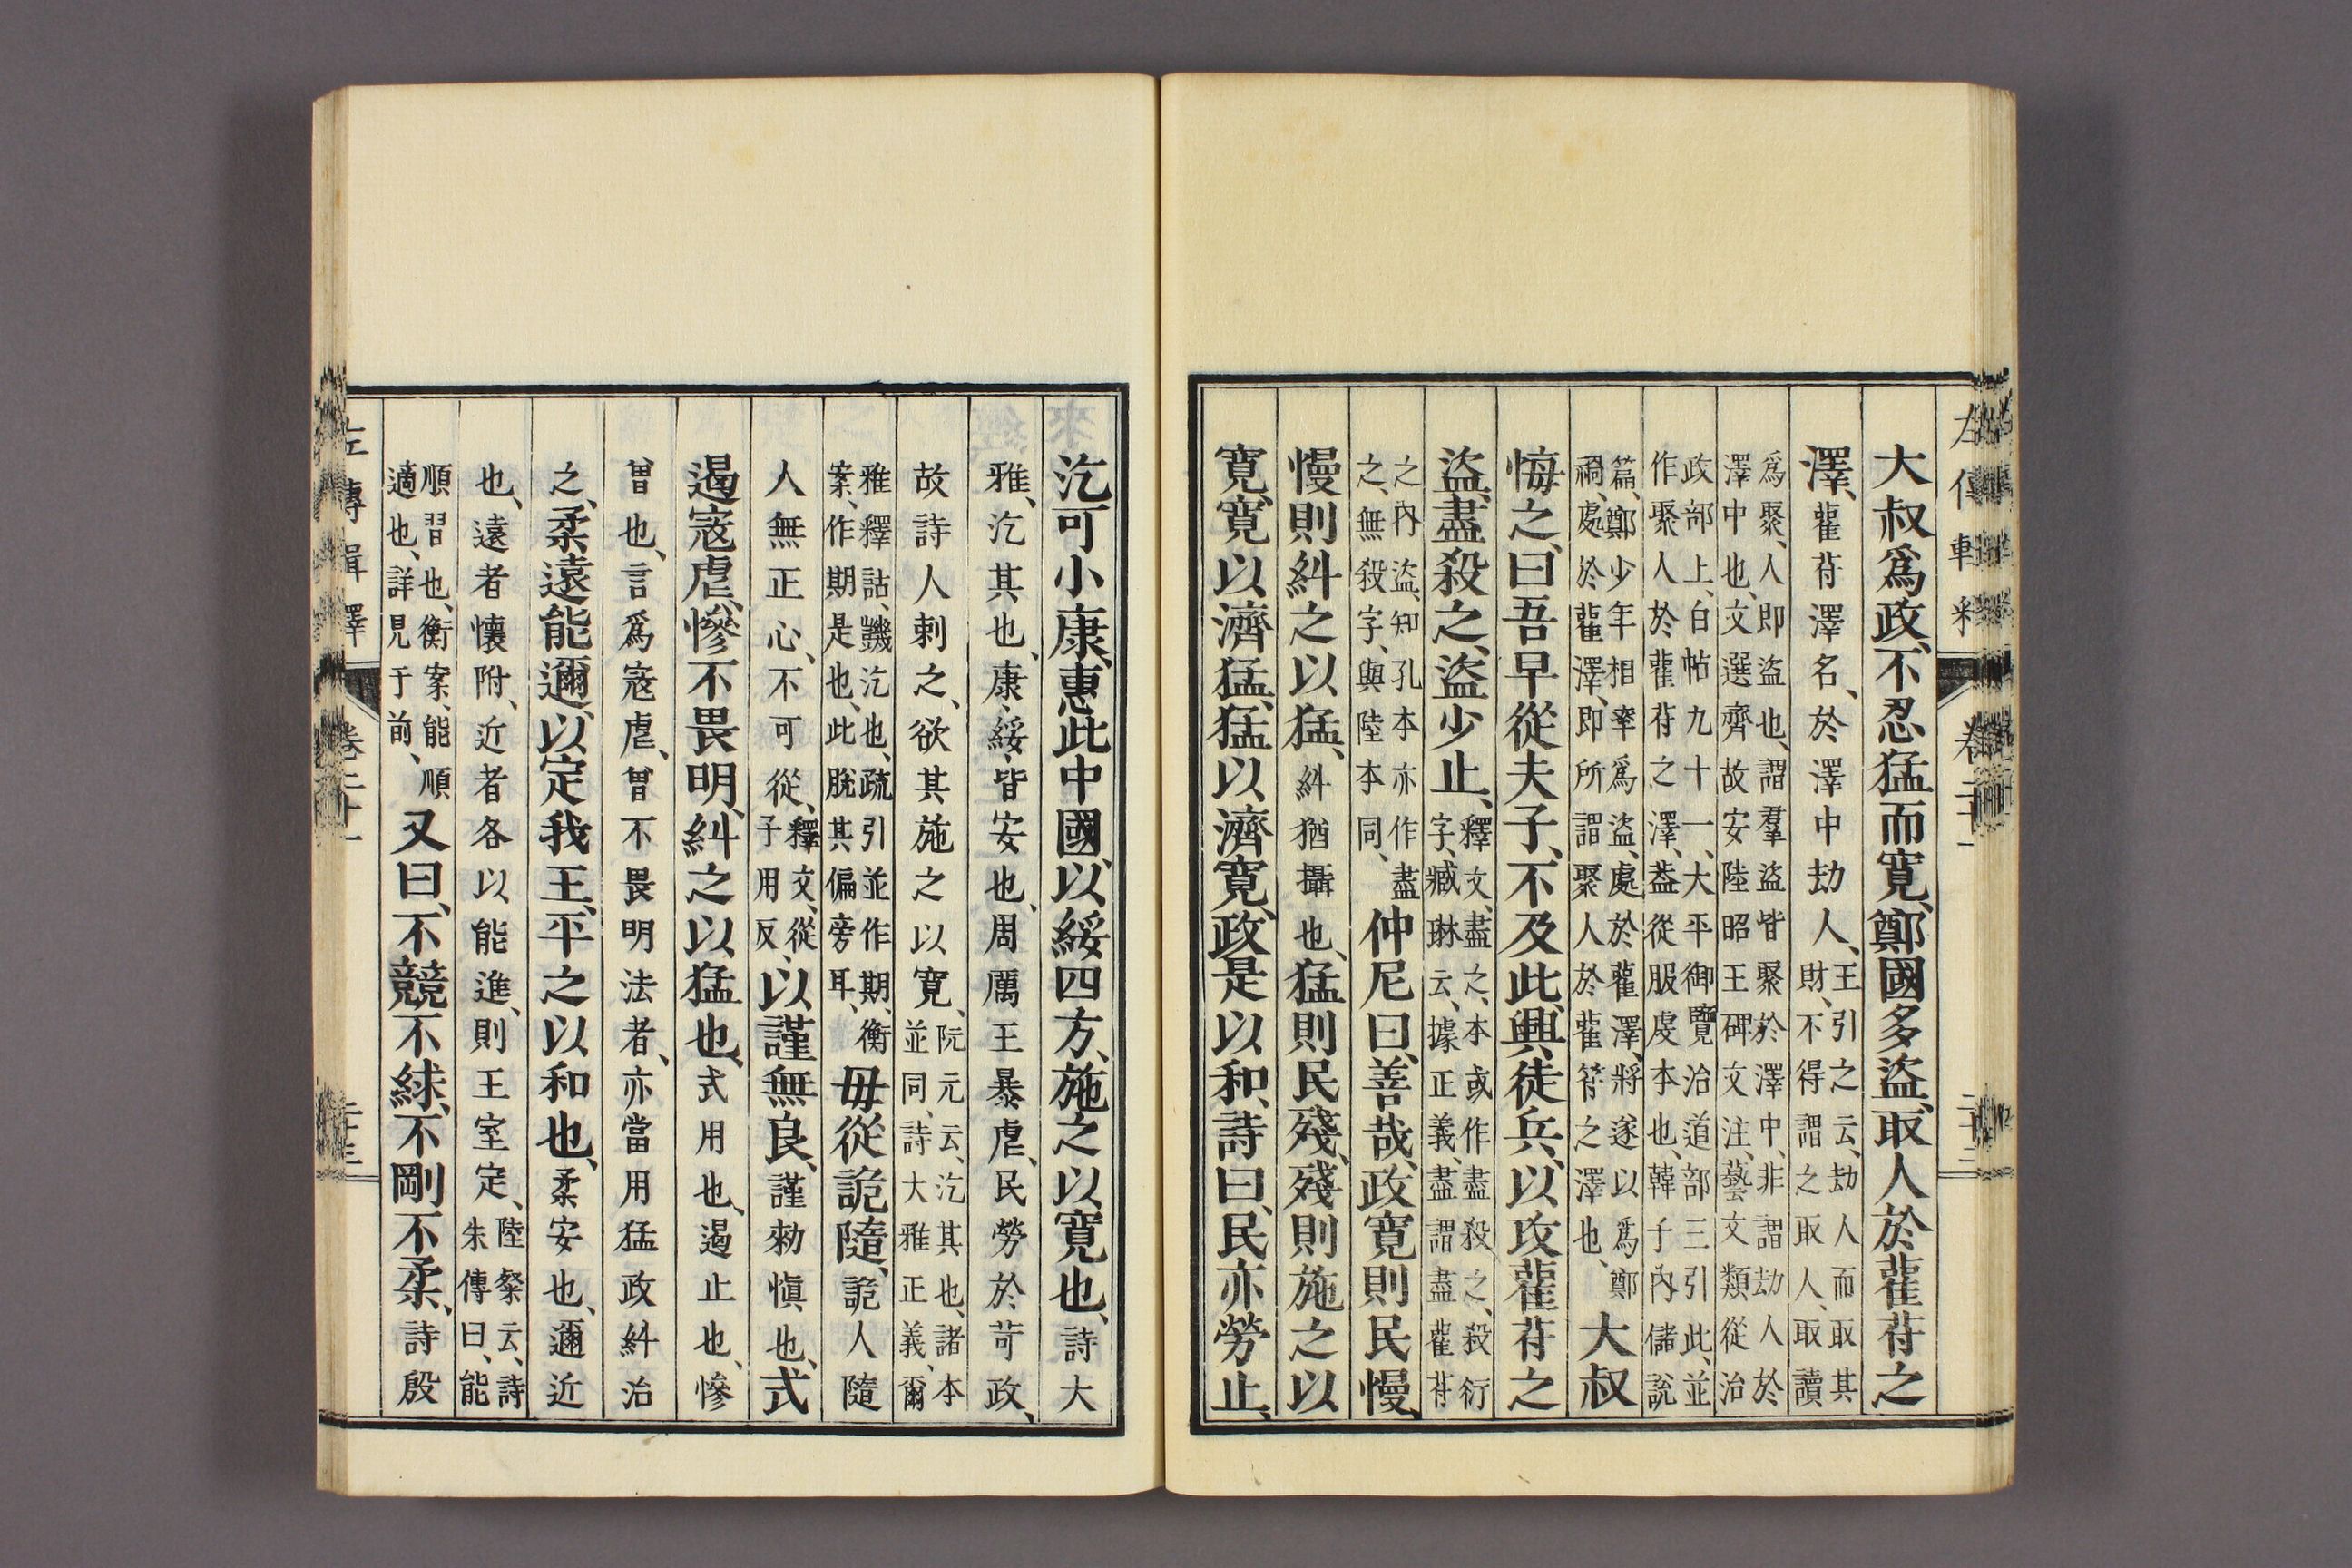 大叔爲政、不忍猛而寬、鄭國多盜、取人於雚苻之
澤、雚苻澤名、於澤中劫人、王引之云、劫人而取其財、不得謂之取人、取讀
爲聚、人即盜也、謂羣盜皆聚於澤中、非謂劫人於澤中也、文選齊故安陸昭王碑文注、藝文類從治
政部上、白帖九十一、大平御覽治道部三引此、並作聚人於雚苻之澤、葢從服虔本也、韓子內儲說
篇、鄭少年相率爲盜、處於雚澤、將遂以爲鄭禍、處於雚澤、即所謂聚人於雚苻之澤也、大叔
悔之、曰吾早從夫子、不及此、興徒兵、以攻雚苻之
盜、盡殺之、盜少止、釋文、盡之、本或作盡殺之、殺衍字、臧琳云、據正義、盡謂盡雚苻
之內盜、知孔本亦作盡之、無殺字、與陸本同、仲尼曰、善哉、政寬則民慢、
慢則糾之以猛、糾猶攝也、猛則民殘、殘則施之以
寬、寬以濟猛、猛以濟寬、政是以和、詩曰、民亦勞止、
汔可小康、惠此中國、以綏四方、施之以寬也、詩大
雅、汔其也、康、綏、皆安也、周厲王暴虐、民勞於苛政、
故詩人刺之、欲其施之以寬、阮元云、汔其也、諸本並同、詩大雅正義、爾
雅釋詁、譏汔也、疏引並作期、衡案、作期是也、此脫其偏旁耳、毋從詭隨、詭人隨
人無正心、不可從、釋文、從子用反、以謹無良、謹勑愼也、式
遏寇虐、慘不畏明、糾之以猛也、式用也、遏止也、慘
曾也、言爲寇虐、曾不畏明法者、亦當用猛政糾治
之、柔遠能邇、以定我王、平之以和也、柔安也、邇近
也、遠者懷附、近者各以能進、則王室定、陸粲云、詩朱傳曰、能
順習也、衡案、能順適也、詳見于前、又曰、不競不絿、不剛不柔、詩殷
左傳輯釋 卷二十一